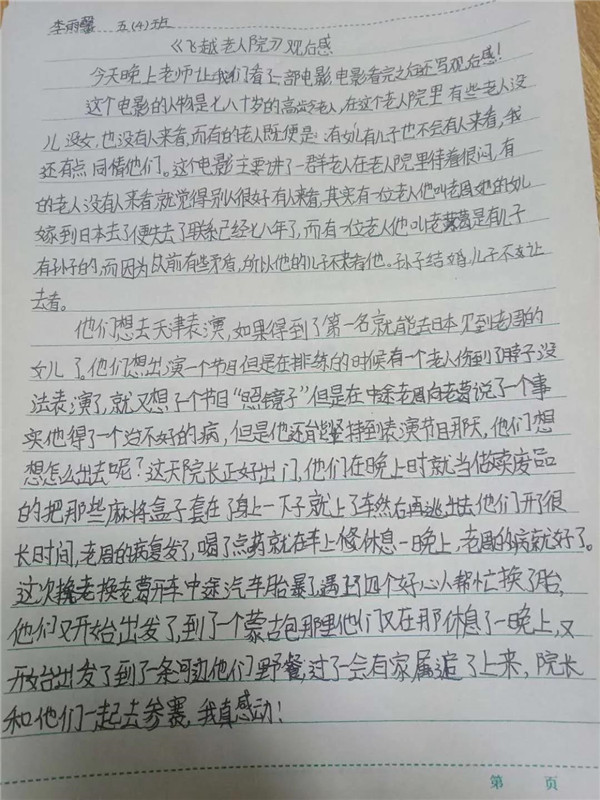 李雨馨 五(4)班
《飞越老人院》观后感
今天晚上老师让我们看了一部电影,电影看完之后还写观后感!
这个电影的人物是七八十岁的高龄老人,在这个老人院里有些老人没
儿没女,也没有人来看,而有的老人既便是:有女儿有儿子也不会有人来看,我
还有点同情他们。这个电影主要讲了一群老人在老人院里待着很闷,有
的老人没有人来看就觉得别人很好有人来看,其实有一位老人他叫老周她的女儿
嫁到日本去了便失去了联系已经七八年了,而有一位老人他叫老葛是有儿子
有孙子的,而因为以前有些矛盾,所以他的儿子不来看他。孙子结婚,儿子不让
去看。
他们想去天津表演,如果得到了第一名就能去日本见到老周的
女儿了。他们想出演一个节目但是在排练的时候有一个老人伤到了脖子没
法表演了,就又想了个节目“照镜子”但是在中途老周向老葛说了一个事
实他得了一个治不好的病,但是他还能坚持到表演节目那天,他们想
想怎么出去呢?这天院长正好出门,他们在晚上时就当做卖废品
的把那些麻将盒子套在了身上一下子就上了车然后再逃出去他们开了很
长时间,老周的病复发了,喝了点药就在车上休息一晚上,老周的病就好了。
这次换老葛开车中途汽车胎暴了,遇到四个好心人帮忙换了胎,
他们又开始出发了,到了一个蒙古包那里他们又在那休息了一晚上,又
开始出发了到了一条河边他们野餐,过了一会有家属追了上来,院长
和他们一起去参赛,我真感动!
第 页